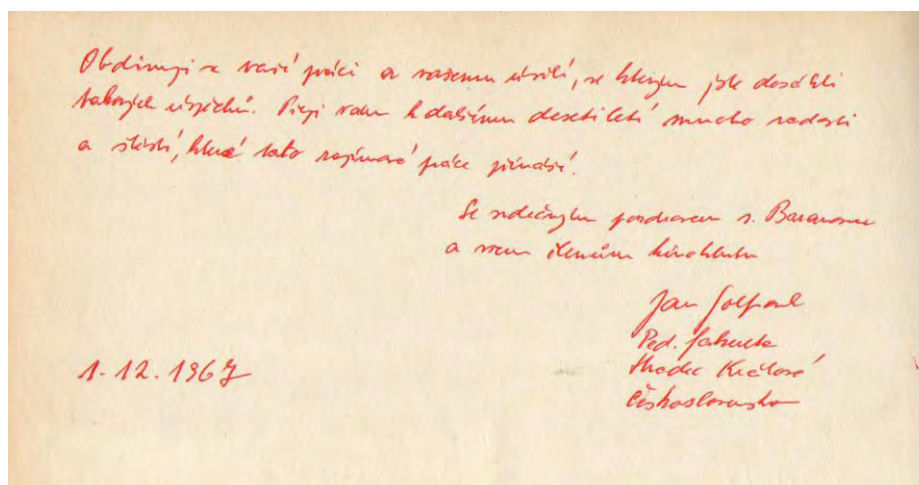 Obdivuji se vaší práci a vašemu úsilí, se kterým jste dosáhli
takových úspěchů. Přeji vám k dalšímu desetiletí mnoho radosti
a štěstí, které tato zajímavá práce přináší.
Se srdečným pozdravem s. Baranovu
a všem členům kinoklubu
Jan
Ped. fakulta
Hradec Králové
Československo
1.12.1967